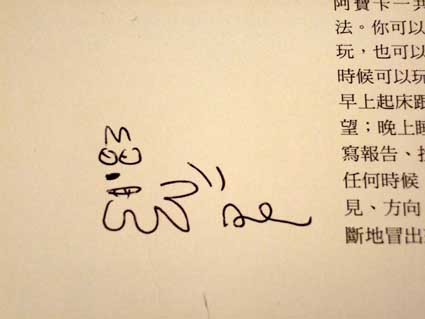 阿寶卡一共
法。你可以
玩,也可以
時候可以玩
早上起床跟
望;晚上睡
寫報告、
任何時候
見、方向
斷地冒出